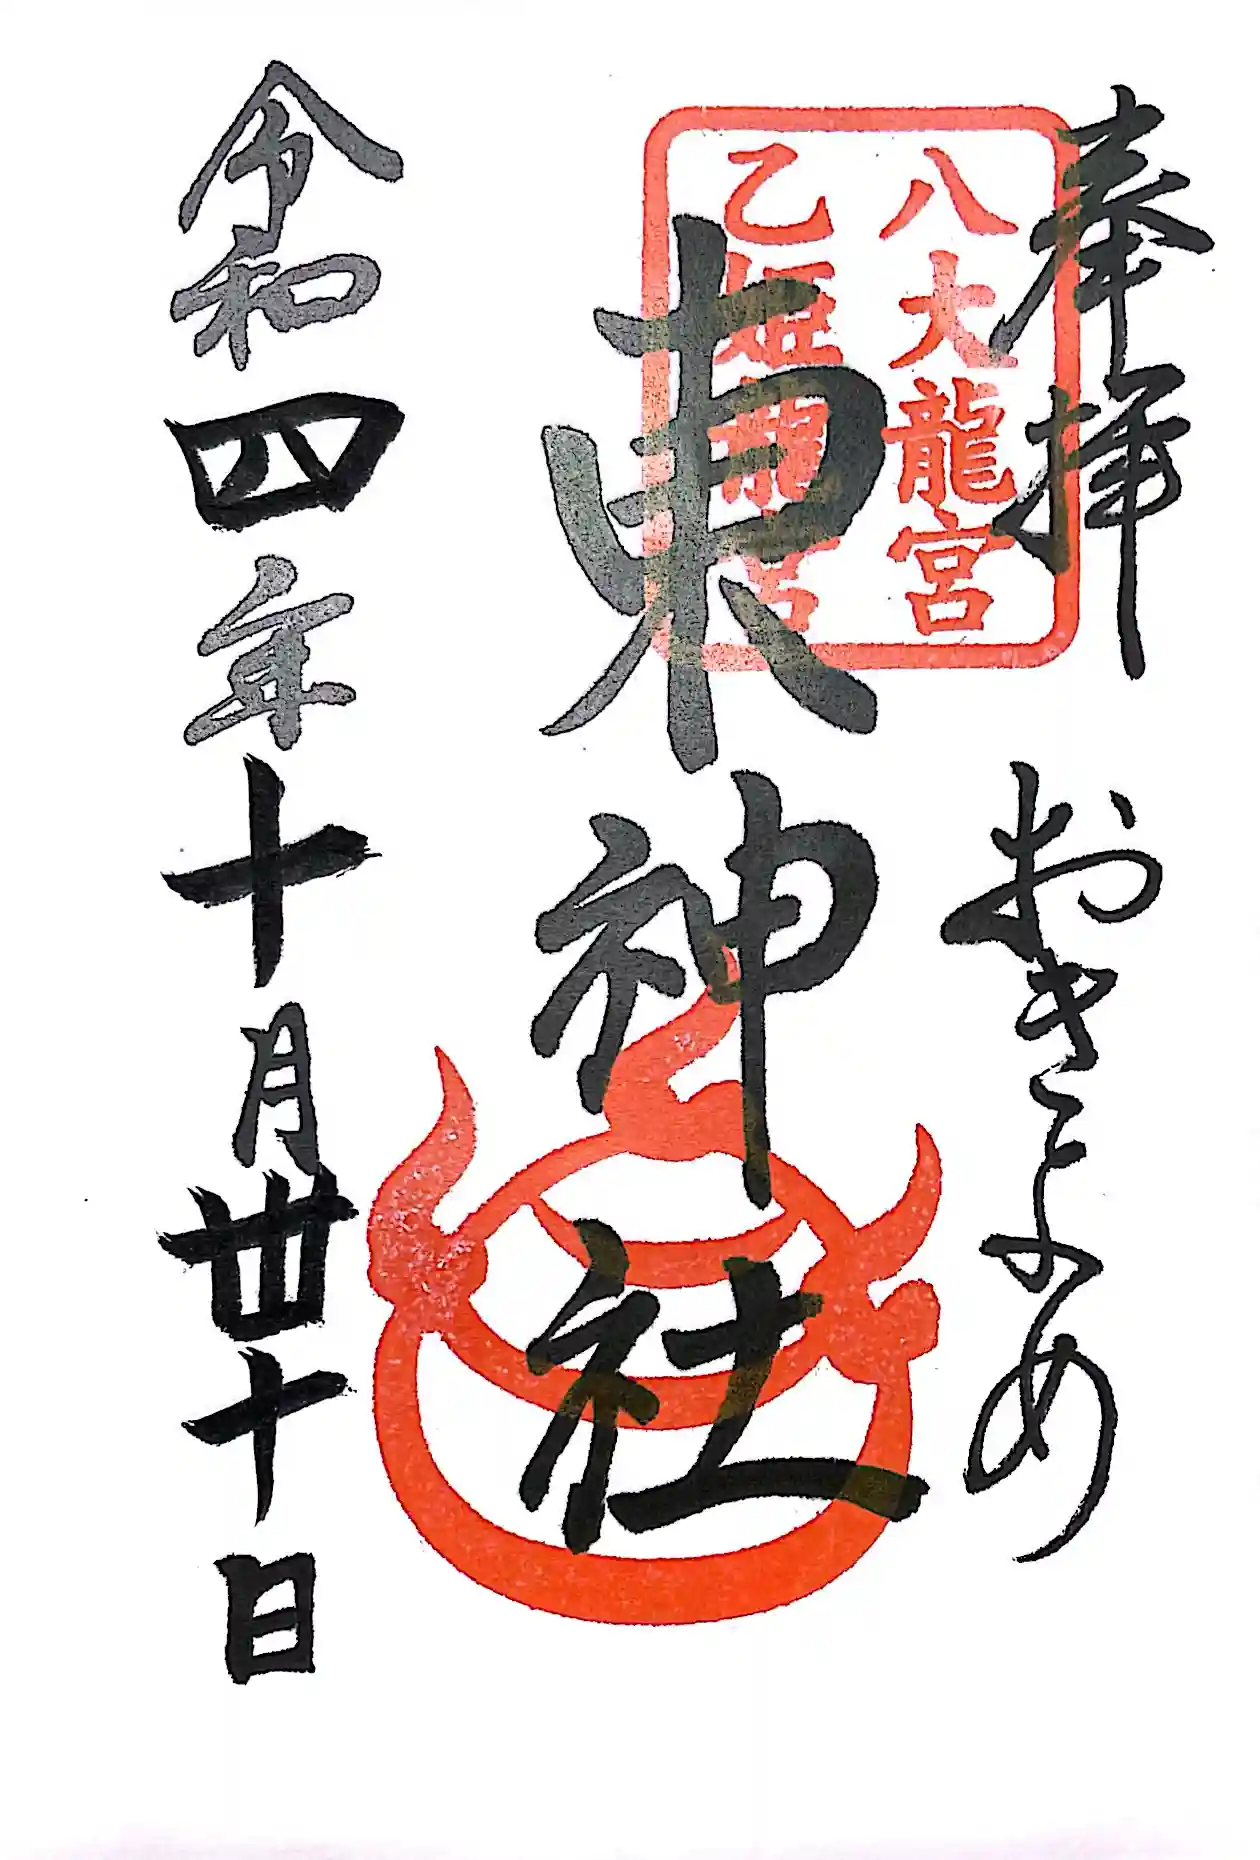 奉拝
八大龍宮
乙姫龍宮
東神社
令和四年十月丗十日